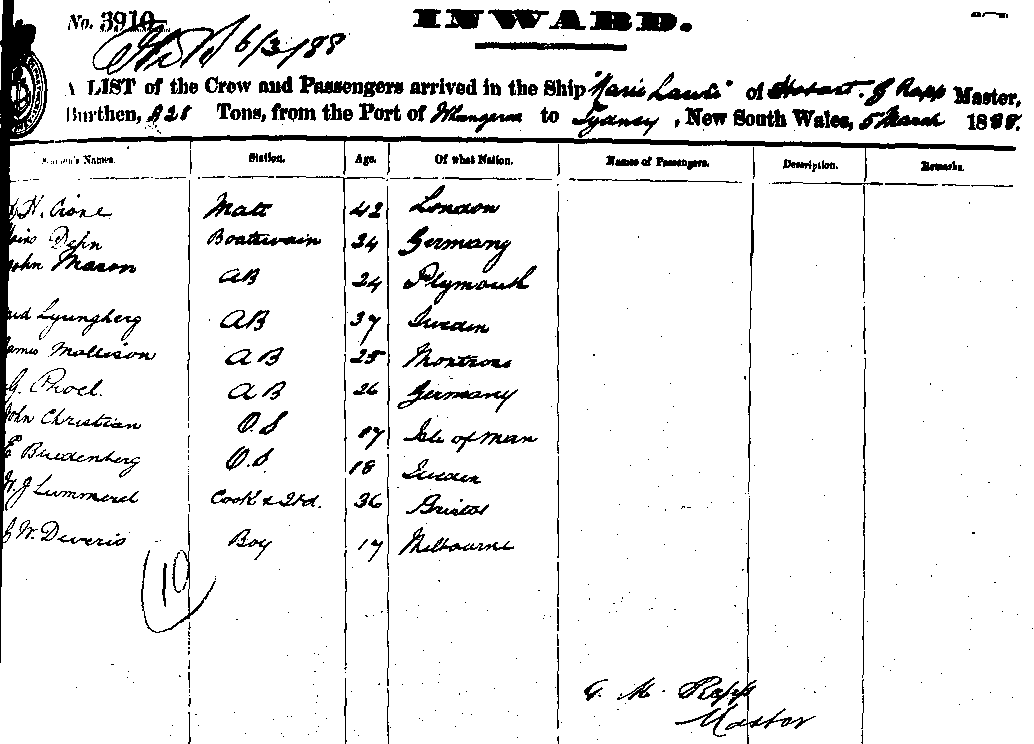 No. 3910
INWARD.
6/3/88
A LIST of the Crew and Passengers arrived in the Ship "Marie Laure" of Hobart. J Rapp Master,
Burthen, 328 Tons, from the Port of Whangaroa to Sydney, New South Wales, 5 March 1888.
Seamen's Names. Station. Age. Of what Nation. Names of Passengers. Description. Remarks.
H. Crone Mate 42 London
Dehn Boatswain 34 Germany
John Mason AB 24 Plymouth
Lyungberg AB 37 Sweden
James Mollison AB 25 Montrose
G. AB 26 Germany
John Christian O.S 17 Isle of Man
E Buedenberg O.S. 18 Sweden
W. J Cook & Std. 36 Bristol
G W. Deveris Boy 17 Melbourne
10
G. M. Rapp
Master